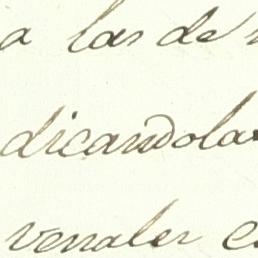 a las de
dicandola
venales e